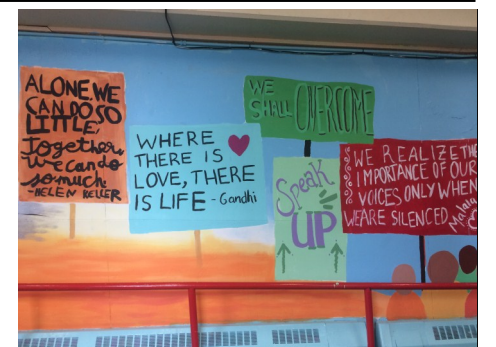 ALONE, WE
CAN DO SO
LITTLE,
Together
we can do
so much
-HELEN KELLER
WHERE
THERE IS
LOVE, THERE
IS LIFE - Gandhi
WE
SHALL OVERCOME
Speak
UP
WE REALIZE THE
IMPORTANCE OF OUR
VOICES ONLY WHEN
WE ARE SILENCED
Malala